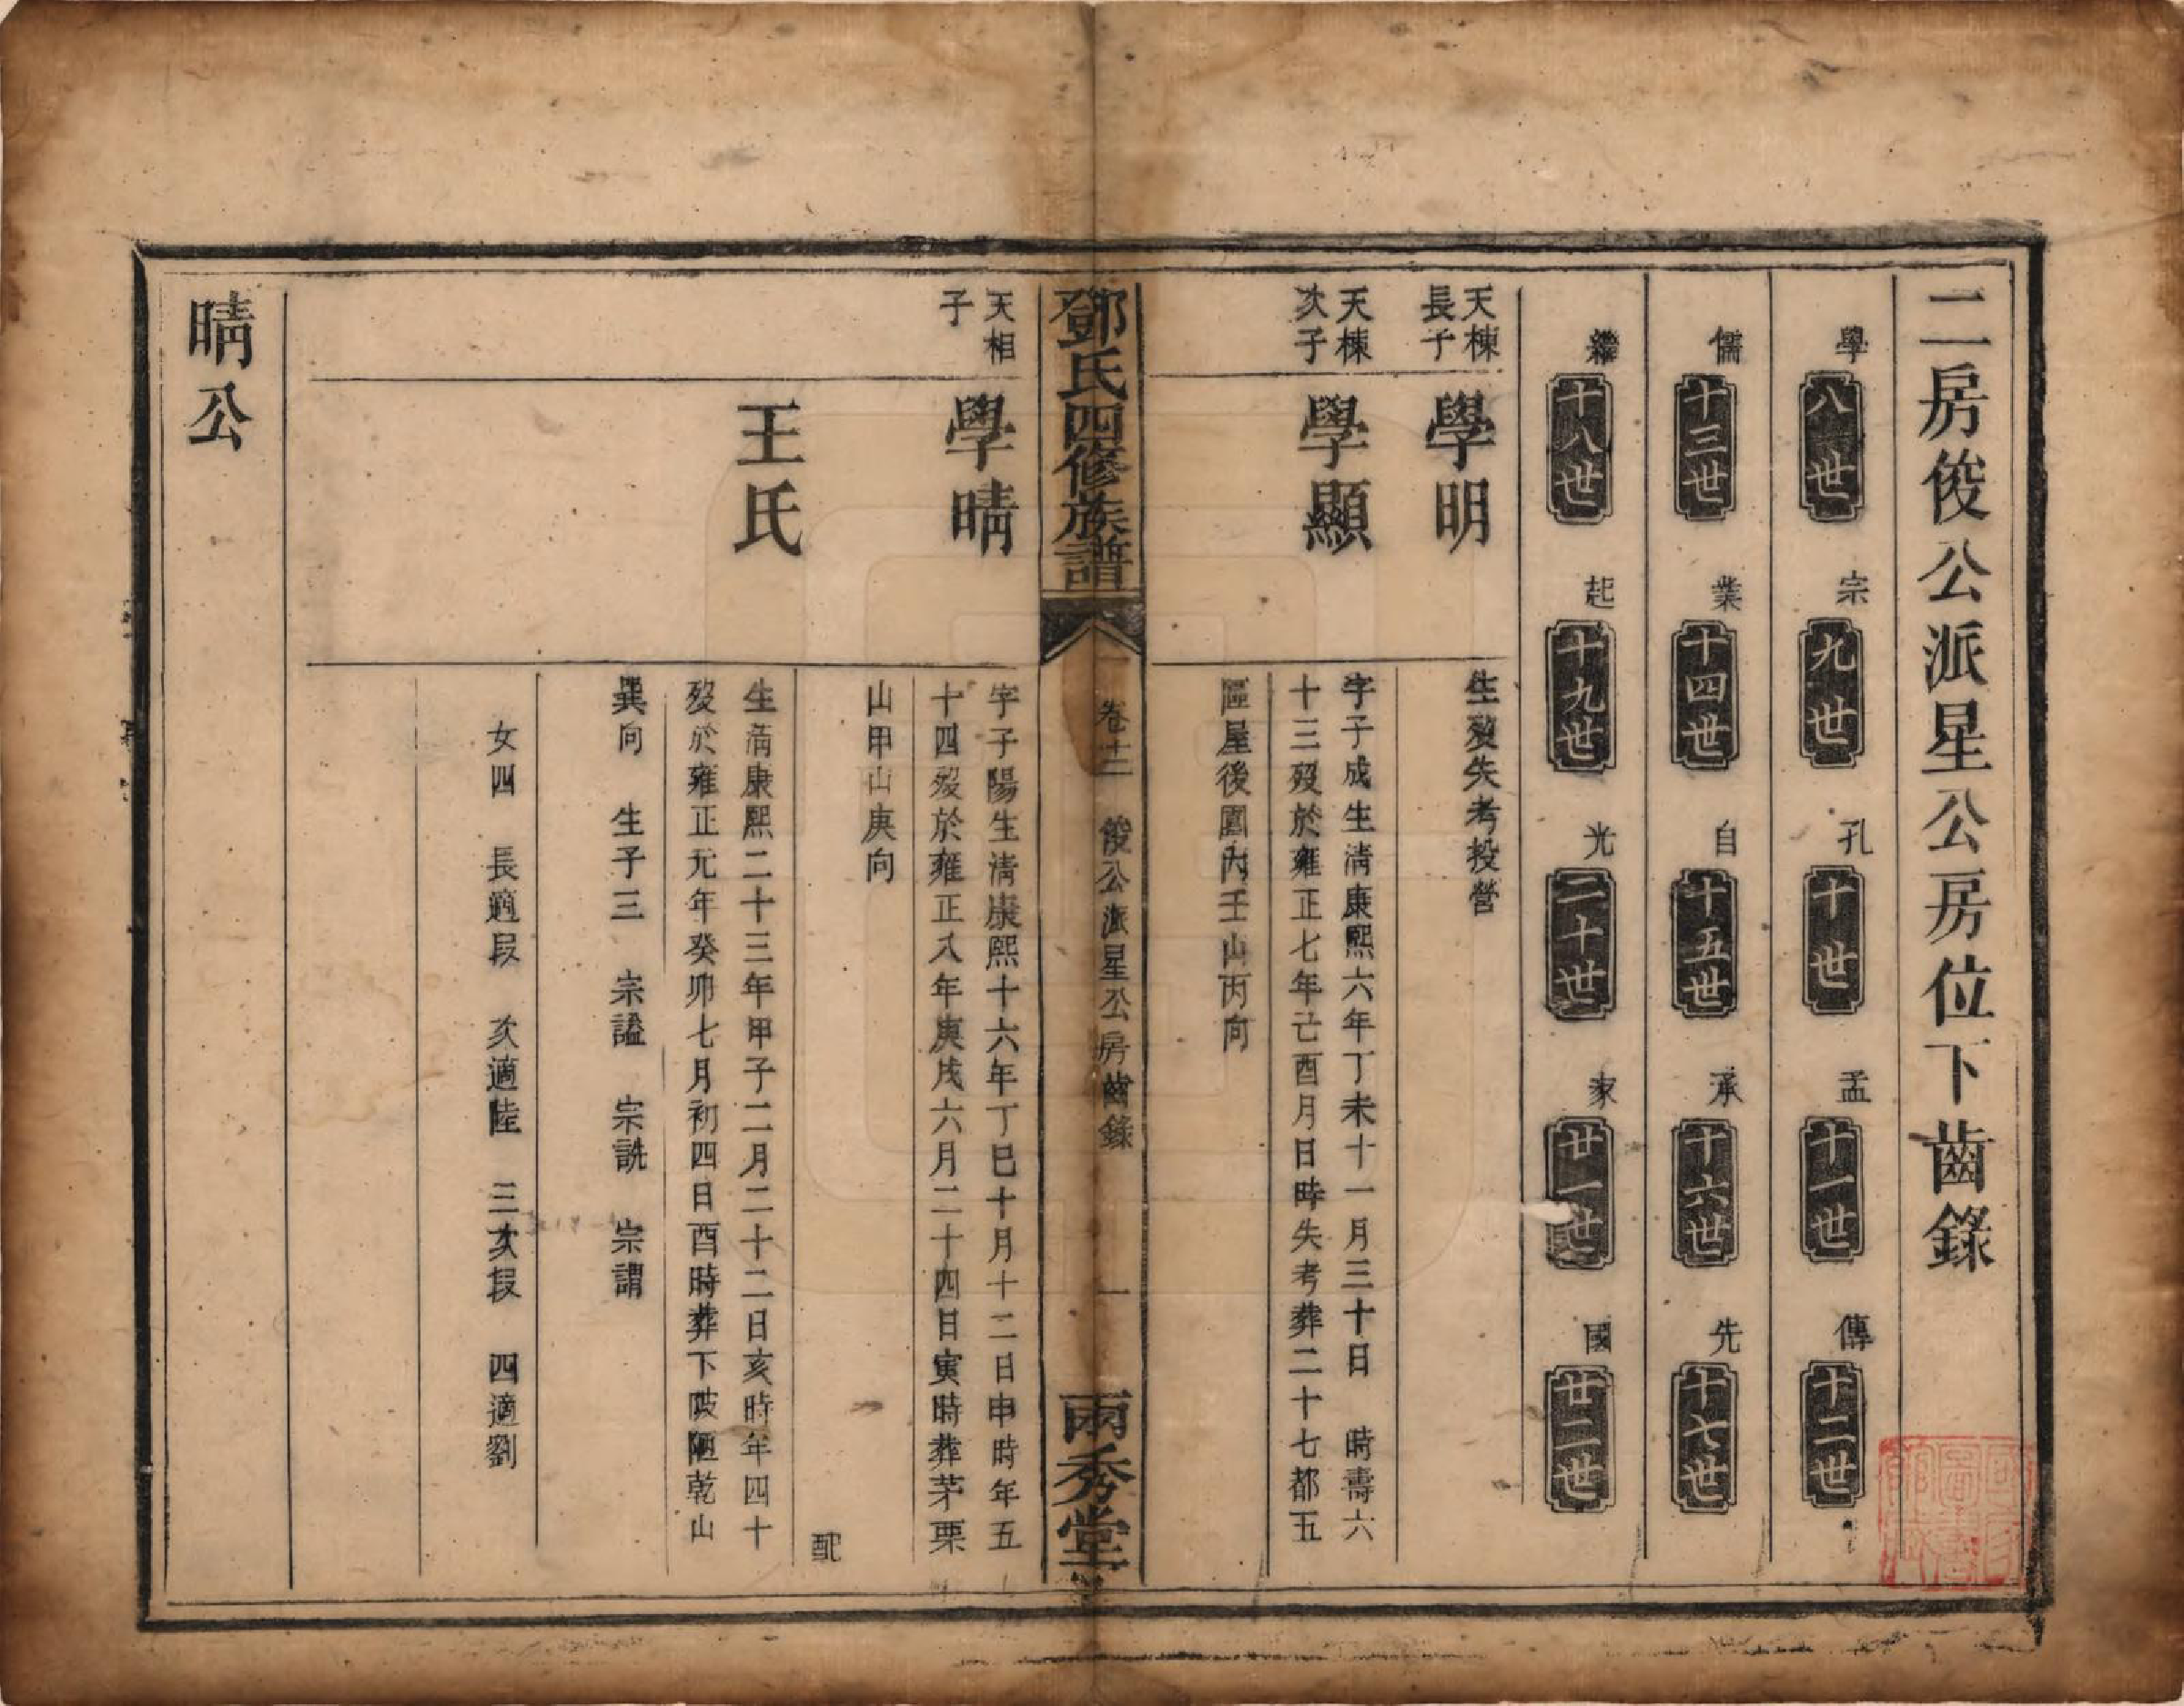 二房俊公派星公房位下齒錄
學 八世 宗 九世 孔 十世 孟 十一世 傳 十二世
儒 十三世 業 十四世 自 十五世 承 十六世 先 十七世
繼 十八世 起 十九世 光 二十世 家 廿一世 國 廿二世
天棟
長子
學明
生歿失考投營
天棟
次子
學顯
字子成生清康熙六年丁未十一月三十日 時壽六
十三歿於雍正七年己酉月日時失考葬二十七都五
區屋後園內壬山丙向
鄧氏四修族譜
卷十二 俊公派星公房齒錄
一
兩秀堂
天相
子
學晴
字子陽生清康熙十六年丁巳十月十二日申時年五
十四歿於雍正八年庚戌六月二十四日寅時葬茅栗
山甲山庚向
配
王氏
生清康熙二十三年甲子二月二十二日亥時年四十
歿於雍正元年癸卯七月初四日酉時葬下陂陋乾山
巽向 生子三 宗謚 宗詵 宗謂
女四 長適段 次適陸 三次段 四適劉
晴公